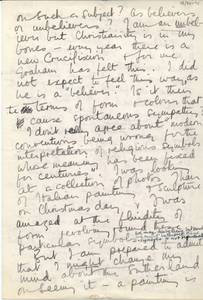 on such a subject? As believers
or unbelievers? I am an unbel-
iever but Christianity is in my
bones – every year there is a
new Crucifixion – for me.
Graham has felt this. I did
not expect to feel this way, as
he is a "believer." Is it then
terms of form & colour that
cause spontaneous sympathy?
I don't agree about modern
conventions being wrong in the
interpretation of religious symbols
whose meaning has been fixed
for centuries". I was looking
at a collection of photos
of Italian painting & sculpture
on Christmas day. I was
amazed at the fluidity of
form revolving round
particular symbols
But I am prepared to admit
that I might change my
mind about the Sutherland
on seeing it – a painting is